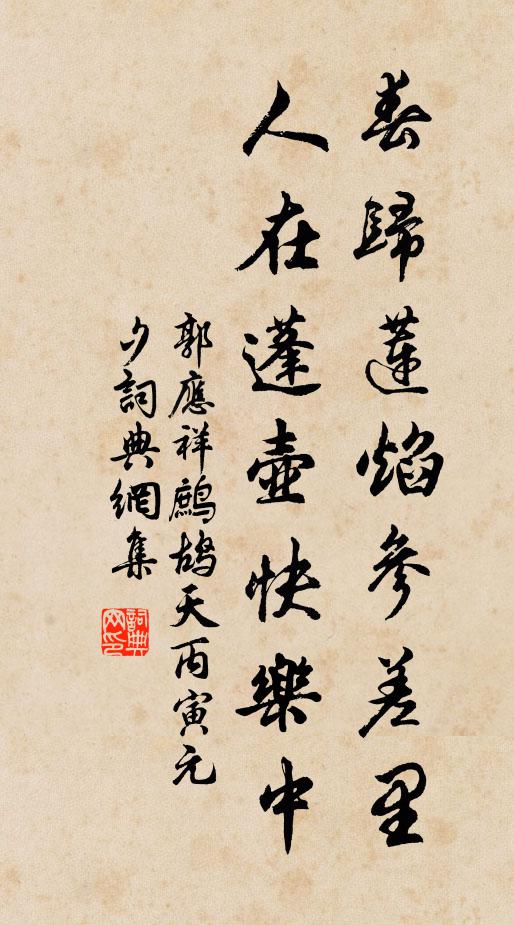 春歸蓮焰參差里
人在蓬壺快樂中
郭應祥鷓鴣天丙寅元
夕詞典網集
詞典網印